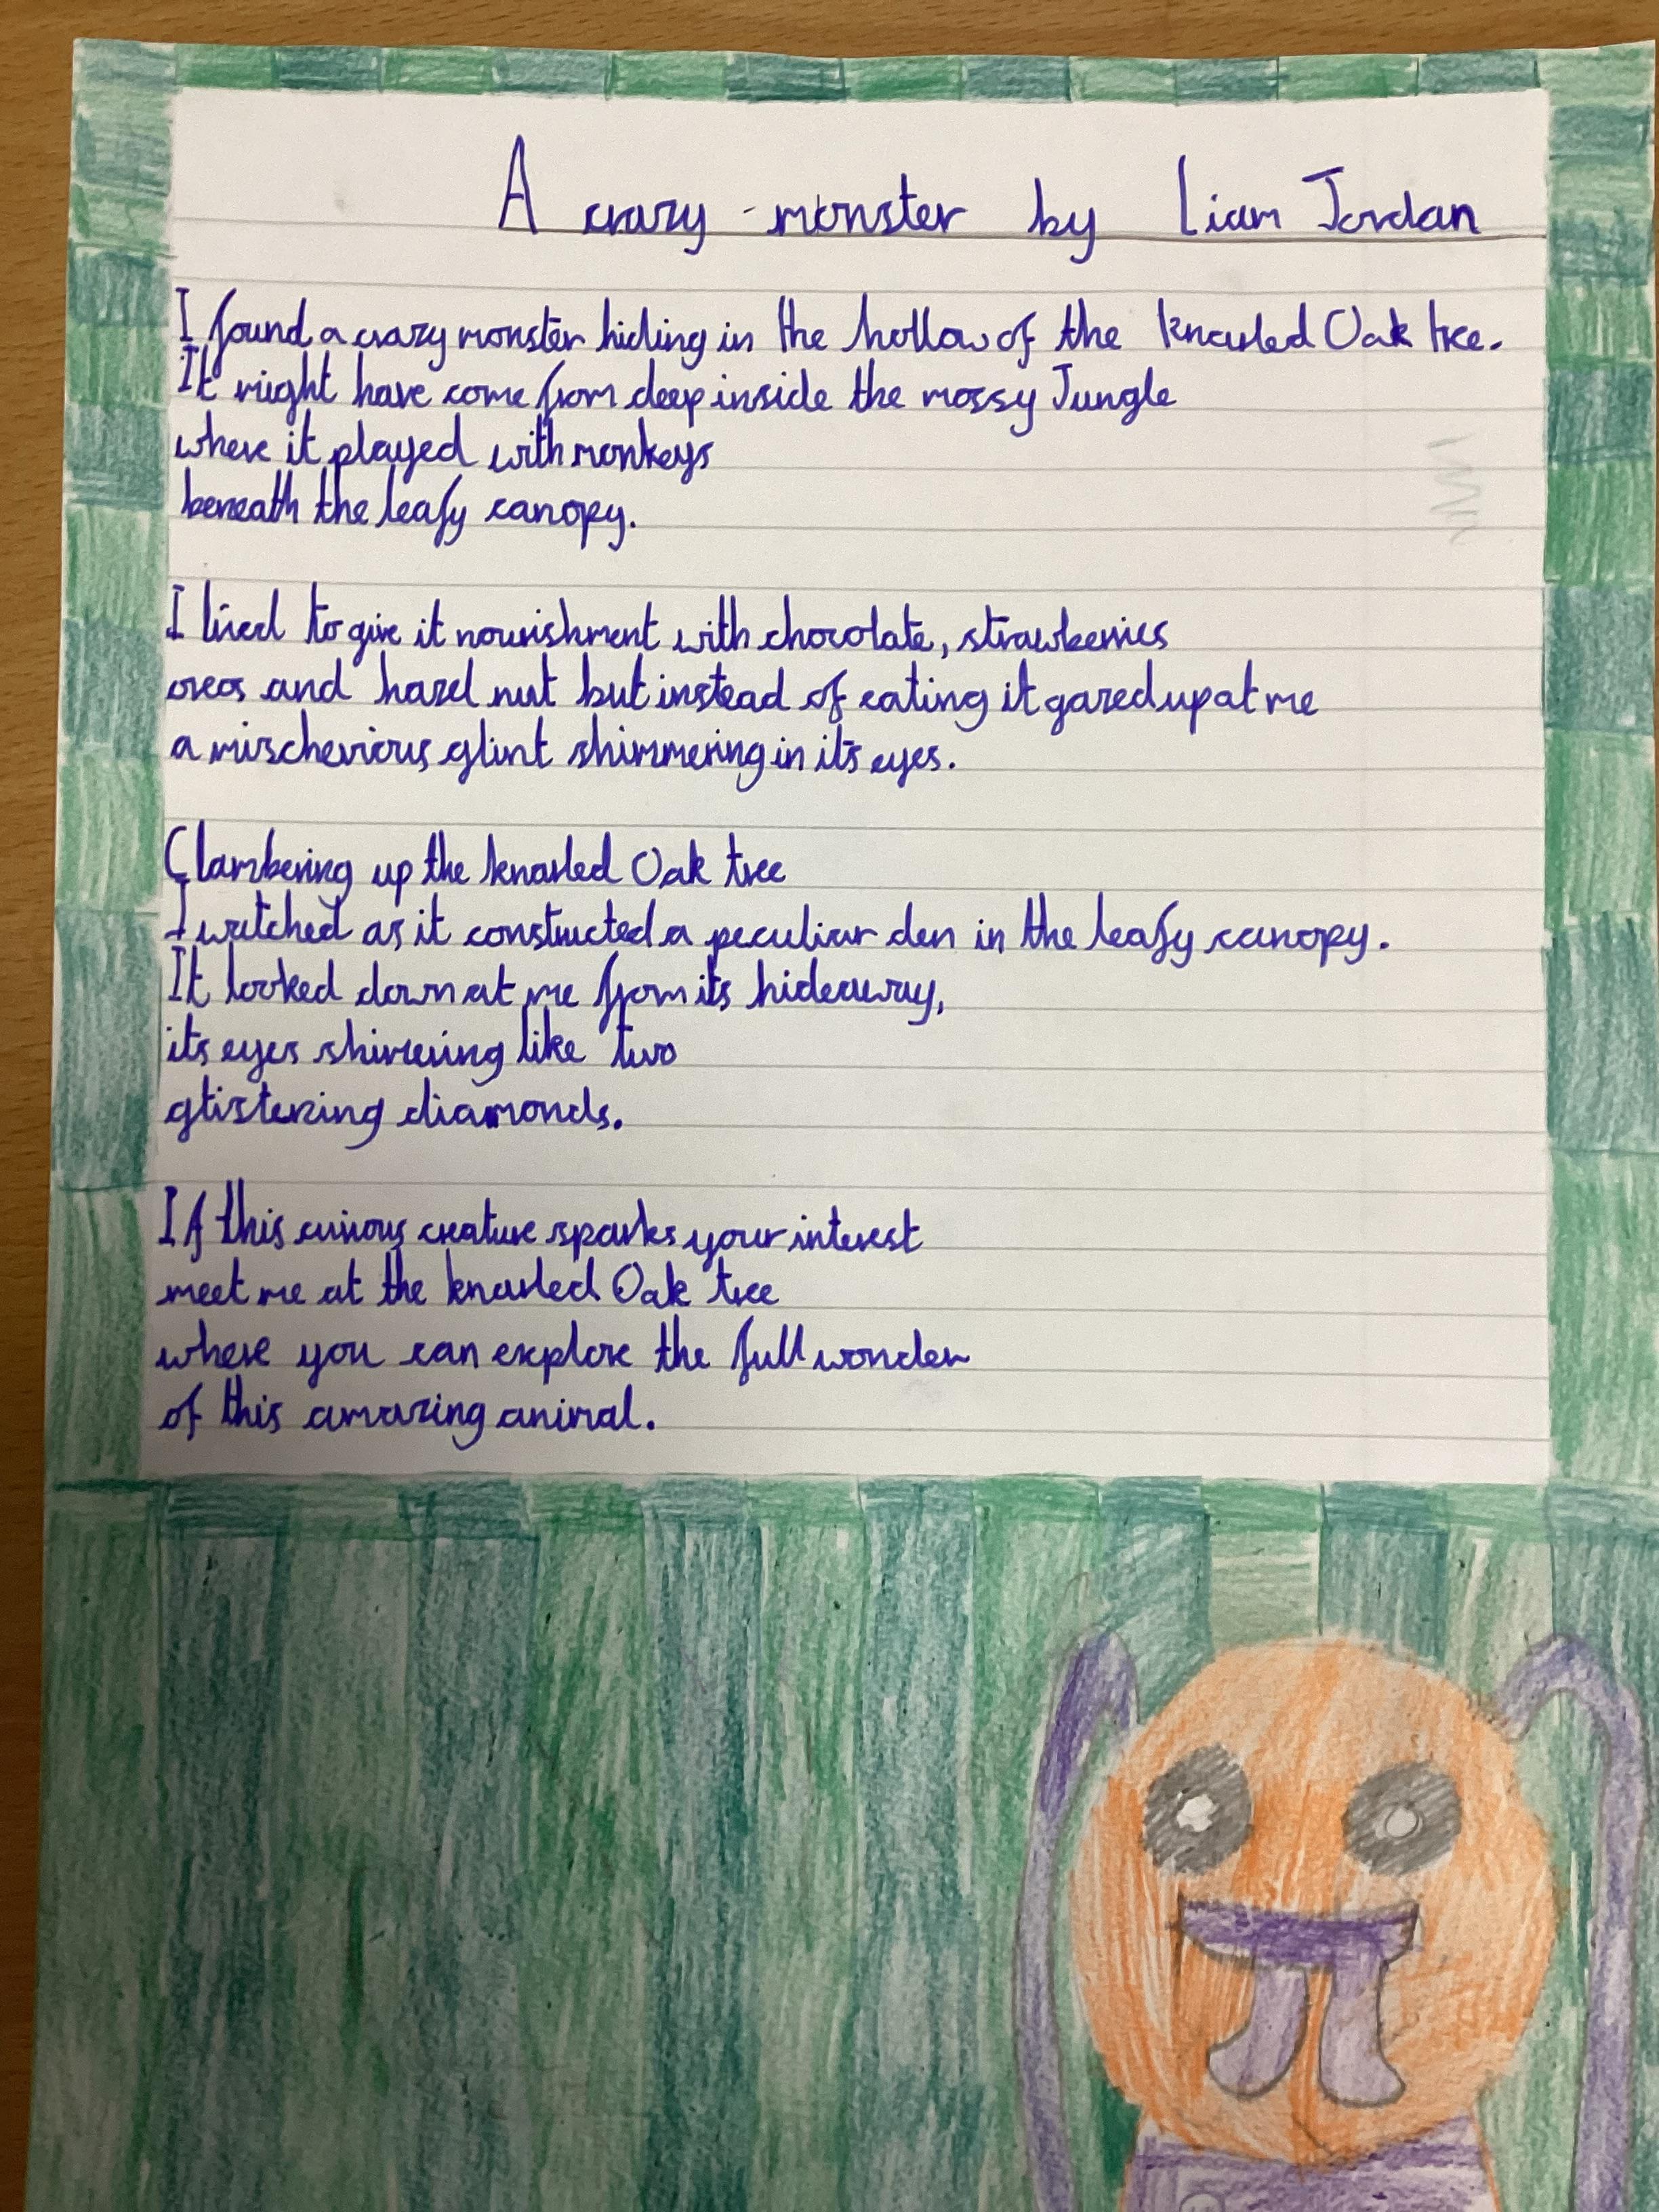 A crazy monster by Liam Jordan
I found a crazy monster hiding in the hollow of the knarled Oak tree.
It might have come from deep inside the mossy Jungle
where it played with monkeys
beneath the leafy canopy.
I tried to give it nourishment with chocolate, strawberries
oreos and hazel nut but instead of eating it gazed up at me
a mischevious glint shimmering in it's eyes.
Clambering up the knarled Oak tree
I watched as it constructed a peculiar den in the leafy canopy.
It looked down at me from its hideaway,
its eyes shimering like two
glistering diamonds.
If this curious creature sparks your interest
meet me at the knarled Oak tree
where you can explore the full wonder
of this amazing animal.